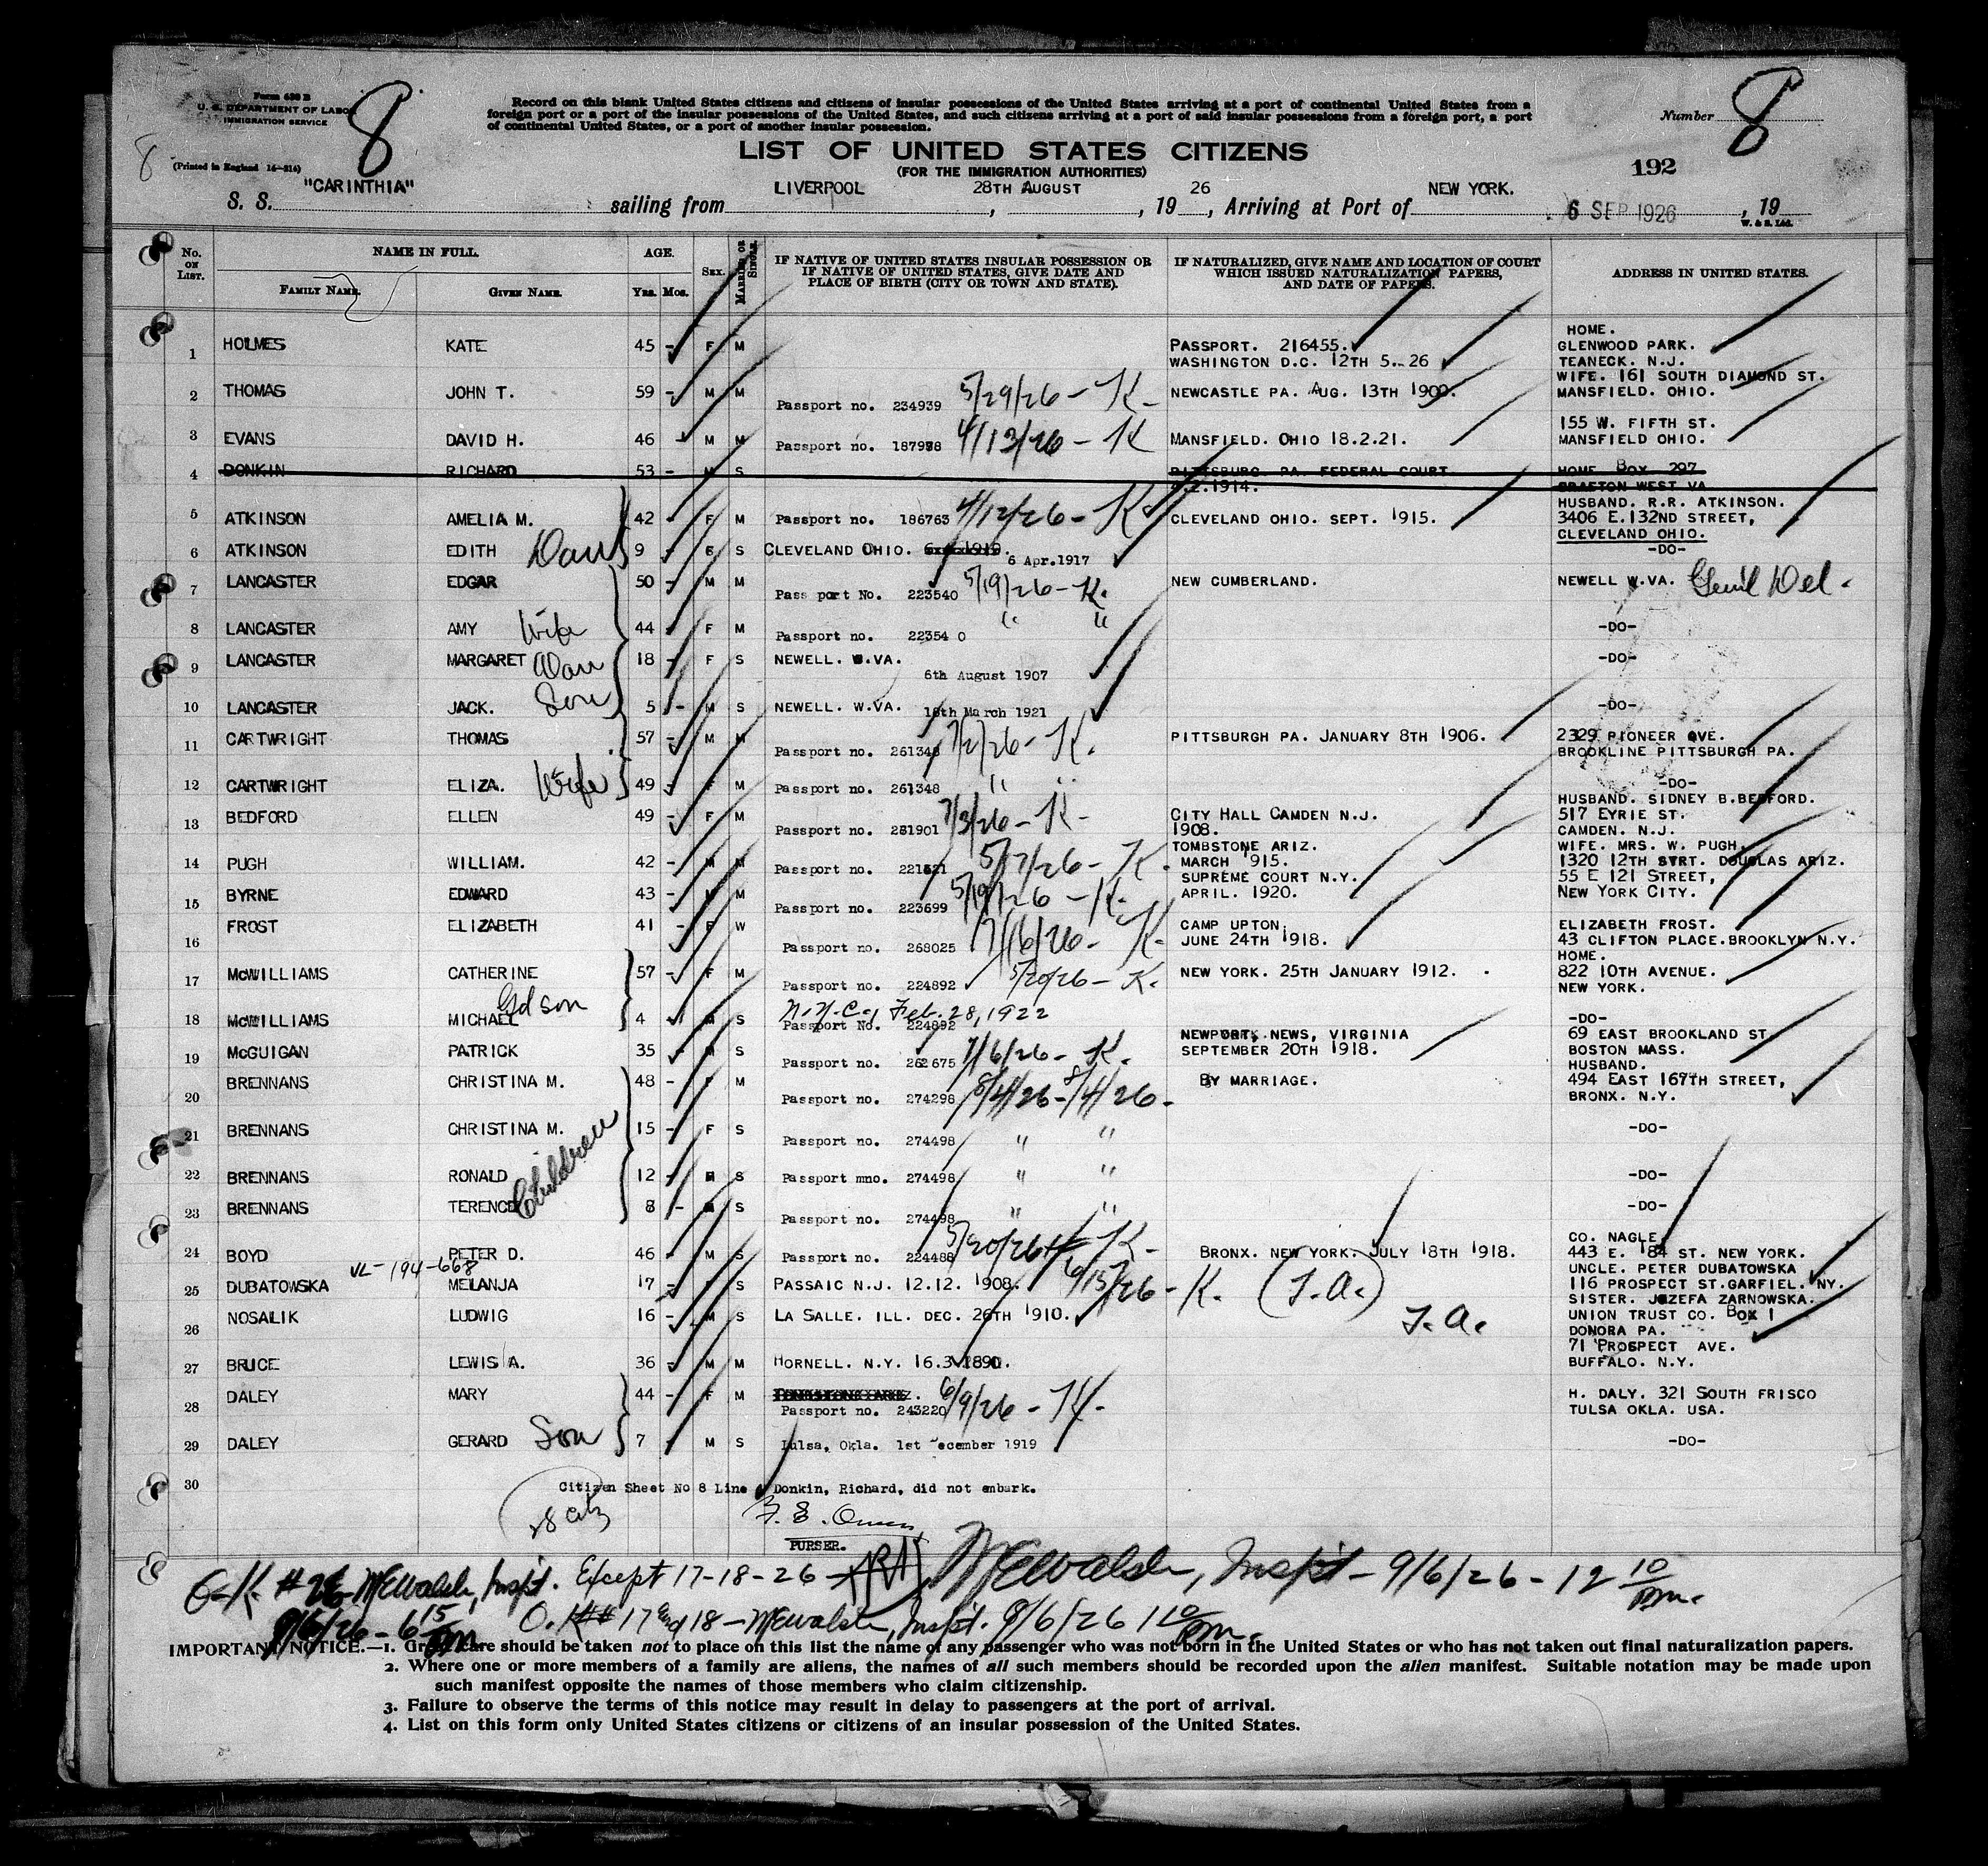 8
Form 630 B
U. S. DEPARTMENT OF LABOR
IMMIGRATION SERVICE
8
(Printed in England 16—314)
Record on this blank United States citizens and citizens of insular possessions of the United States arriving at a port of continental United States from a
foreign port or a port of the insular possessions of the United States, and such citizens arriving at a port of said insular possessions from a foreign port, a port
of continental United States, or a port of another insular possession.
Number 8
LIST OF UNITED STATES CITIZENS
(FOR THE IMMIGRATION AUTHORITIES)
192
S. S. "CARINTHIA" sailing from LIVERPOOL, 28TH AUGUST, 19 26, Arriving at Port of NEW YORK. 6 SEP 1926, 19
W. & S. Ltd.
No. ON LIST. NAME IN FULL. AGE. SEX. MARRIED OR SINGLE. IF NATIVE OF UNITED STATES INSULAR POSSESSION OR IF NATIVE OF UNITED STATES, GIVE DATE AND PLACE OF BIRTH (CITY OR TOWN AND STATE). IF NATURALIZED, GIVE NAME AND LOCATION OF COURT WHICH ISSUED NATURALIZATION PAPERS, AND DATE OF PAPERS. ADDRESS IN UNITED STATES.
FAMILY NAME. GIVEN NAME. YRS. MOS.
1 HOLMES KATE 45 - F M PASSPORT. 216455. WASHINGTON D.C. 12TH 5. 26 HOME. GLENWOOD PARK. TEANECK. N.J.
2 THOMAS JOHN T. 59 - M M Passport no. 234939 5/29/26 - K - NEWCASTLE PA. AUG. 13TH 1900. WIFE. 161 SOUTH DIAMOND ST. MANSFIELD. OHIO.
3 EVANS DAVID H. 46 - M M Passport no. 187978 4/13/26 - K MANSFIELD. OHIO 18.2.21. 155 W. FIFTH ST. MANSFIELD OHIO.
4 DONKIN RICHARD 53 - M S PITTSBURG. PA. FEDERAL COURT 1914. HOME BOX 297 GRAFTON WEST VA
5 ATKINSON AMELIA M. 42 - F M Passport no. 186763 4/12/26 - K CLEVELAND OHIO. SEPT. 1915. HUSBAND. R.R. ATKINSON. 3406 E.132ND STREET, CLEVELAND OHIO.
6 ATKINSON EDITH Dau 9 - F S CLEVELAND OHIO. 6 Apr.1917 -DO-
7 LANCASTER EDGAR 50 - M M Pass port No. 223540 5/19/26 - K. NEW CUMBERLAND. NEWELL W.VA. Gen'l Del.
8 LANCASTER AMY Wife 44 - F M Passport no. 22354 0 " " -DO-
9 LANCASTER MARGARET Dau 18 - F S NEWELL. W.VA. 6th August 1907 -DO-
10 LANCASTER JACK. Son 5 - M S NEWELL. W.VA. 16th March 1921 -DO-
11 CARTWRIGHT THOMAS 57 - M M Passport no. 261348 7/2/26 - K. PITTSBURGH PA. JANUARY 8TH 1906. 2329 PIONEER AVE. BROOKLINE PITTSBURGH PA.
12 CARTWRIGHT ELIZA. Wife 49 - F M Passport no. 261348 " " -DO-
13 BEDFORD ELLEN 49 - F M Passport no. 281901 7/3/26 - K - CITY HALL CAMDEN N.J. 1908. HUSBAND. SIDNEY B.BEDFORD. 517 EYRIE ST. CAMDEN. N.J.
14 PUGH WILLIAM. 42 - M M Passport no. 221521 5/17/26 - K. TOMBSTONE ARIZ. MARCH 1915. WIFE. MRS. W. PUGH. 1320 12TH STRT. DOUGLAS ARIZ.
15 BYRNE EDWARD 43 - M M Passport no. 223699 5/19/26 - K. SUPREME COURT N.Y. APRIL. 1920. 55 E 121 STREET, NEW YORK CITY.
16 FROST ELIZABETH 41 - F W Passport no. 268025 7/16/26 - K. CAMP UPTON. JUNE 24TH 1918. ELIZABETH FROST. 43 CLIFTON PLACE.BROOKLYN N.Y.
17 McWILLIAMS CATHERINE 57 - F M Passport no. 224892 5/20/26 - K. NEW YORK. 25TH JANUARY 1912. HOME. 822 10TH AVENUE. NEW YORK.
18 McWILLIAMS MICHAEL Gdson 4 M S N.Y.C., Feb. 28, 1922 Passport No. 224892 -DO-
19 McGUIGAN PATRICK 35 - M S Passport no. 262675 7/6/26 - K. NEWPORT, NEWS, VIRGINIA SEPTEMBER 20TH 1918. 69 EAST BROOKLAND ST BOSTON MASS.
20 BRENNANS CHRISTINA M. 48 - F M Passport no. 274298 8/4/26 - 8/4/26 - BY MARRIAGE. HUSBAND. 494 EAST 167TH STREET, BRONX. N.Y.
21 BRENNANS CHRISTINA M. Children 15 - F S Passport no. 274498 " " -DO-
22 BRENNANS RONALD 12 - M S Passport mno. 274498 " " -DO-
23 BRENNANS TERENCE 8 - M S Passport no. 274498 " " -DO-
24 BOYD PETER D. 46 - M S Passport no. 224488 5/20/26 K - BRONX. NEW YORK. JULY 18TH 1918. CO. NAGLE 443 E. 184 ST. NEW YORK.
VL-194-668
25 DUBATOWSKA MELANJA 17 - F S PASSAIC N.J. 12.12. 1908. 6/15/26 - K. (T.A.) UNCLE. PETER DUBATOWSKA 116 PROSPECT ST.GARFIEL. NY.
26 NOSALIK LUDWIG 16 - M S LA SALLE. ILL. DEC. 26TH 1910. T.A. SISTER. JOZEFA ZARNOWSKA. UNION TRUST CO. BOX 1 DONORA PA.
27 BRUCE LEWIS A. 36 - M M HORNELL. N.Y. 16.3.1890. 71 PROSPECT AVE. BUFFALO. N.Y.
28 DALEY MARY 44 - F M Passport no. 243220 6/9/26 - K. H. DALY. 321 SOUTH FRISCO TULSA OKLA. USA.
29 DALEY GERARD Son 7 - M S Tulsa, Okla. 1st December 1919 -DO-
30 Citizen Sheet No 8 Line 4 Donkin, Richard, did not embark.
PURSER.
O-K. #26 McWalsh, Insp't. Except 17-18-26 McWalsh, Insp't - 9/6/26 - 12 10/pm.
9/6/26 - 6 15/pm O.K. ## 17 and 18 - McWalsh, Insp't. 9/6/26 1 10/pm.
IMPORTANT NOTICE.—1. Great care should be taken not to place on this list the name of any passenger who was not born in the United States or who has not taken out final naturalization papers.
2. Where one or more members of a family are aliens, the names of all such members should be recorded upon the alien manifest. Suitable notation may be made upon
such manifest opposite the names of those members who claim citizenship.
3. Failure to observe the terms of this notice may result in delay to passengers at the port of arrival.
4. List on this form only United States citizens or citizens of an insular possession of the United States.